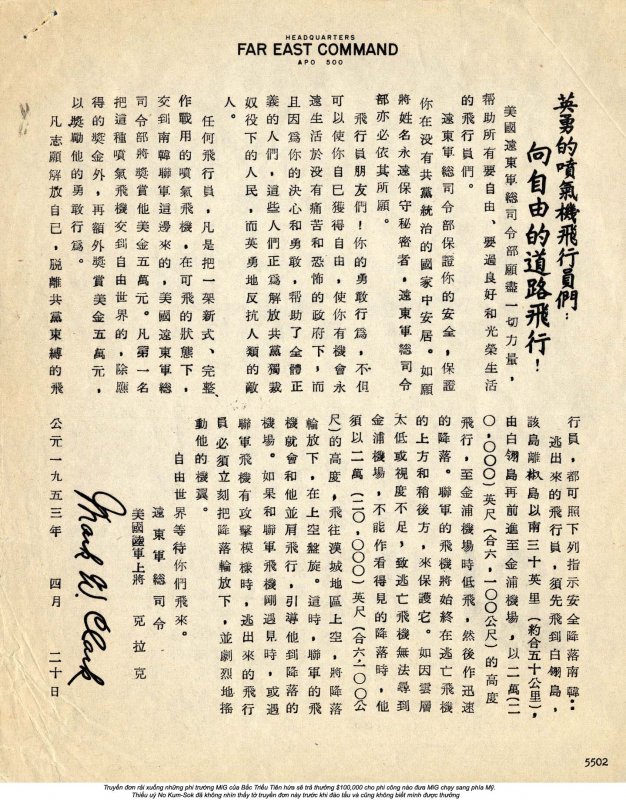 HEADQUARTERS
FAR EAST COMMAND
APO 500
英勇的噴氣機飛行員們:
向自由的道路飛行!
美國遠東軍總司令部願盡一切力量,
幫助所有要自由、要過良好和光榮生活
的飛行員們。
遠東軍總司令部保證你的安全,保證
你在沒有共黨統治的國家中安居。如願
將姓名永遠保守秘密者,遠東軍總司令
部亦必依其所願。
飛行員朋友們!你的勇敢行爲,不但
可以使你自已獲得自由,使你有機會永
遠生活於沒有痛苦和恐怖的政府下,而
且因爲你的決心和勇敢,幫助了全體正
義的人們,這些人們正爲解放共黨獨裁
奴役下的人民,而英勇地反抗人類的敵
人。
任何飛行員,凡是把一架新式、完整、
作戰用的噴氣飛機,在可飛的狀態下,
交到南韓聯軍這邊來的,美國遠東軍總
司令部將獎賞他美金五萬元。凡第一名
把這種噴氣飛機交到自由世界的,除應
得的獎金外,再額外獎賞美金五萬元,
以獎勵他的勇敢行爲。
凡志願解放自已,脫離共黨束縛的飛
行員,都可照下列指示安全降落南韓:
逃出來的飛行員,須先飛到白翎島,
該島離椒島以南三十英里(約合五十公里),
由白翎島再前進至金浦機場,以二萬(二
〇,〇〇〇)英尺(合六,一〇〇公尺)的高度
飛行,至金浦機場時低飛,然後作迅速
的降落。聯軍的飛機將始終在逃亡飛機
的上方和稍後方,來保護它。如因雲層
太低或視度不足,致逃亡飛機無法尋到
金浦機場,不能作看得見的降落時,他
須以二萬(二〇,〇〇〇)英尺(合六,一〇〇公
尺)的高度,飛往漢城地區上空,將降落
輪放下,在上空盤旋。這時,聯軍的飛
機就會和他並肩飛行,引導他到降落的
機場。如果和聯軍飛機剛遇見時,或遇
聯軍飛機有攻擊模樣時,逃出來的飛行
員必須立刻把降落輪放下,並劇烈地搖
動他的機翼。
自由世界等待你們飛來。
遠東軍總司令
美國陸軍上將 克拉克
Mark W. Clark
公元一九五三年 四月 二十日
5502
Truyền đơn rải xuống những phi trường MiG của Bắc Triều Tiên hứa sẽ trả thưởng $100,000 cho phi công nào đưa MiG chạy sang phía Mỹ.
Thiếu uý No Kum-Sok đã không nhìn thấy tờ truyền đơn này trước khi đào tẩu và cũng không biết mình được thưởng